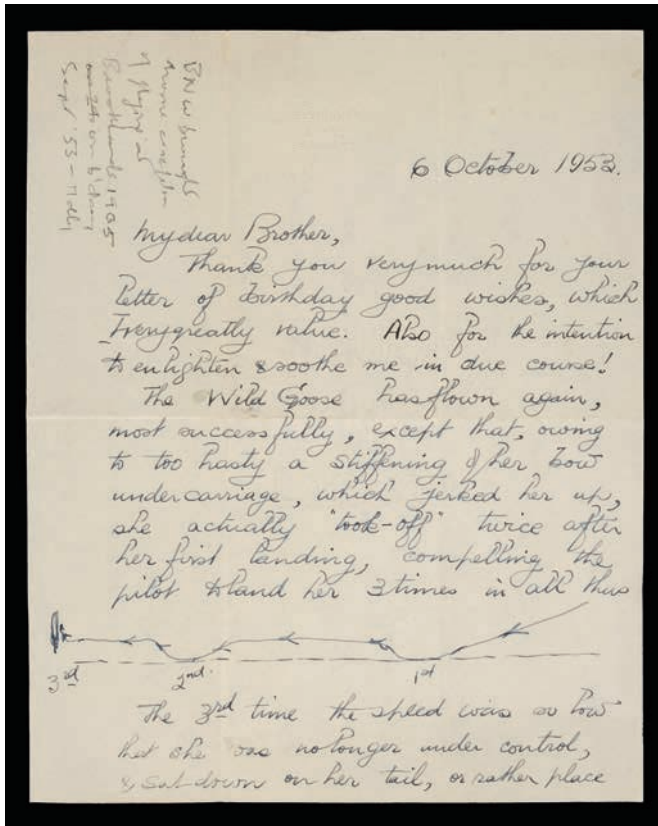 BNW brought
home cine film
of flying at
Brooklands 1935
on b'day
Sept '53 - Molly
6 October 1953.
My dear Brother,
Thank you very much for your
letter of birthday good wishes, which
I very greatly value. Also for the intention
to enlighten & soothe me in due course!
The Wild Goose has flown again,
most successfully, except that, owing
to too hasty a stiffening of her bow
undercarriage, which jerked her up,
she actually "took-off" twice after
her first landing, compelling the
pilot to land her 3 times in all thus
3rd 2nd. 1st
The 3rd time the speed was so low
that she was no longer under control,
& sat down on her tail, or rather place